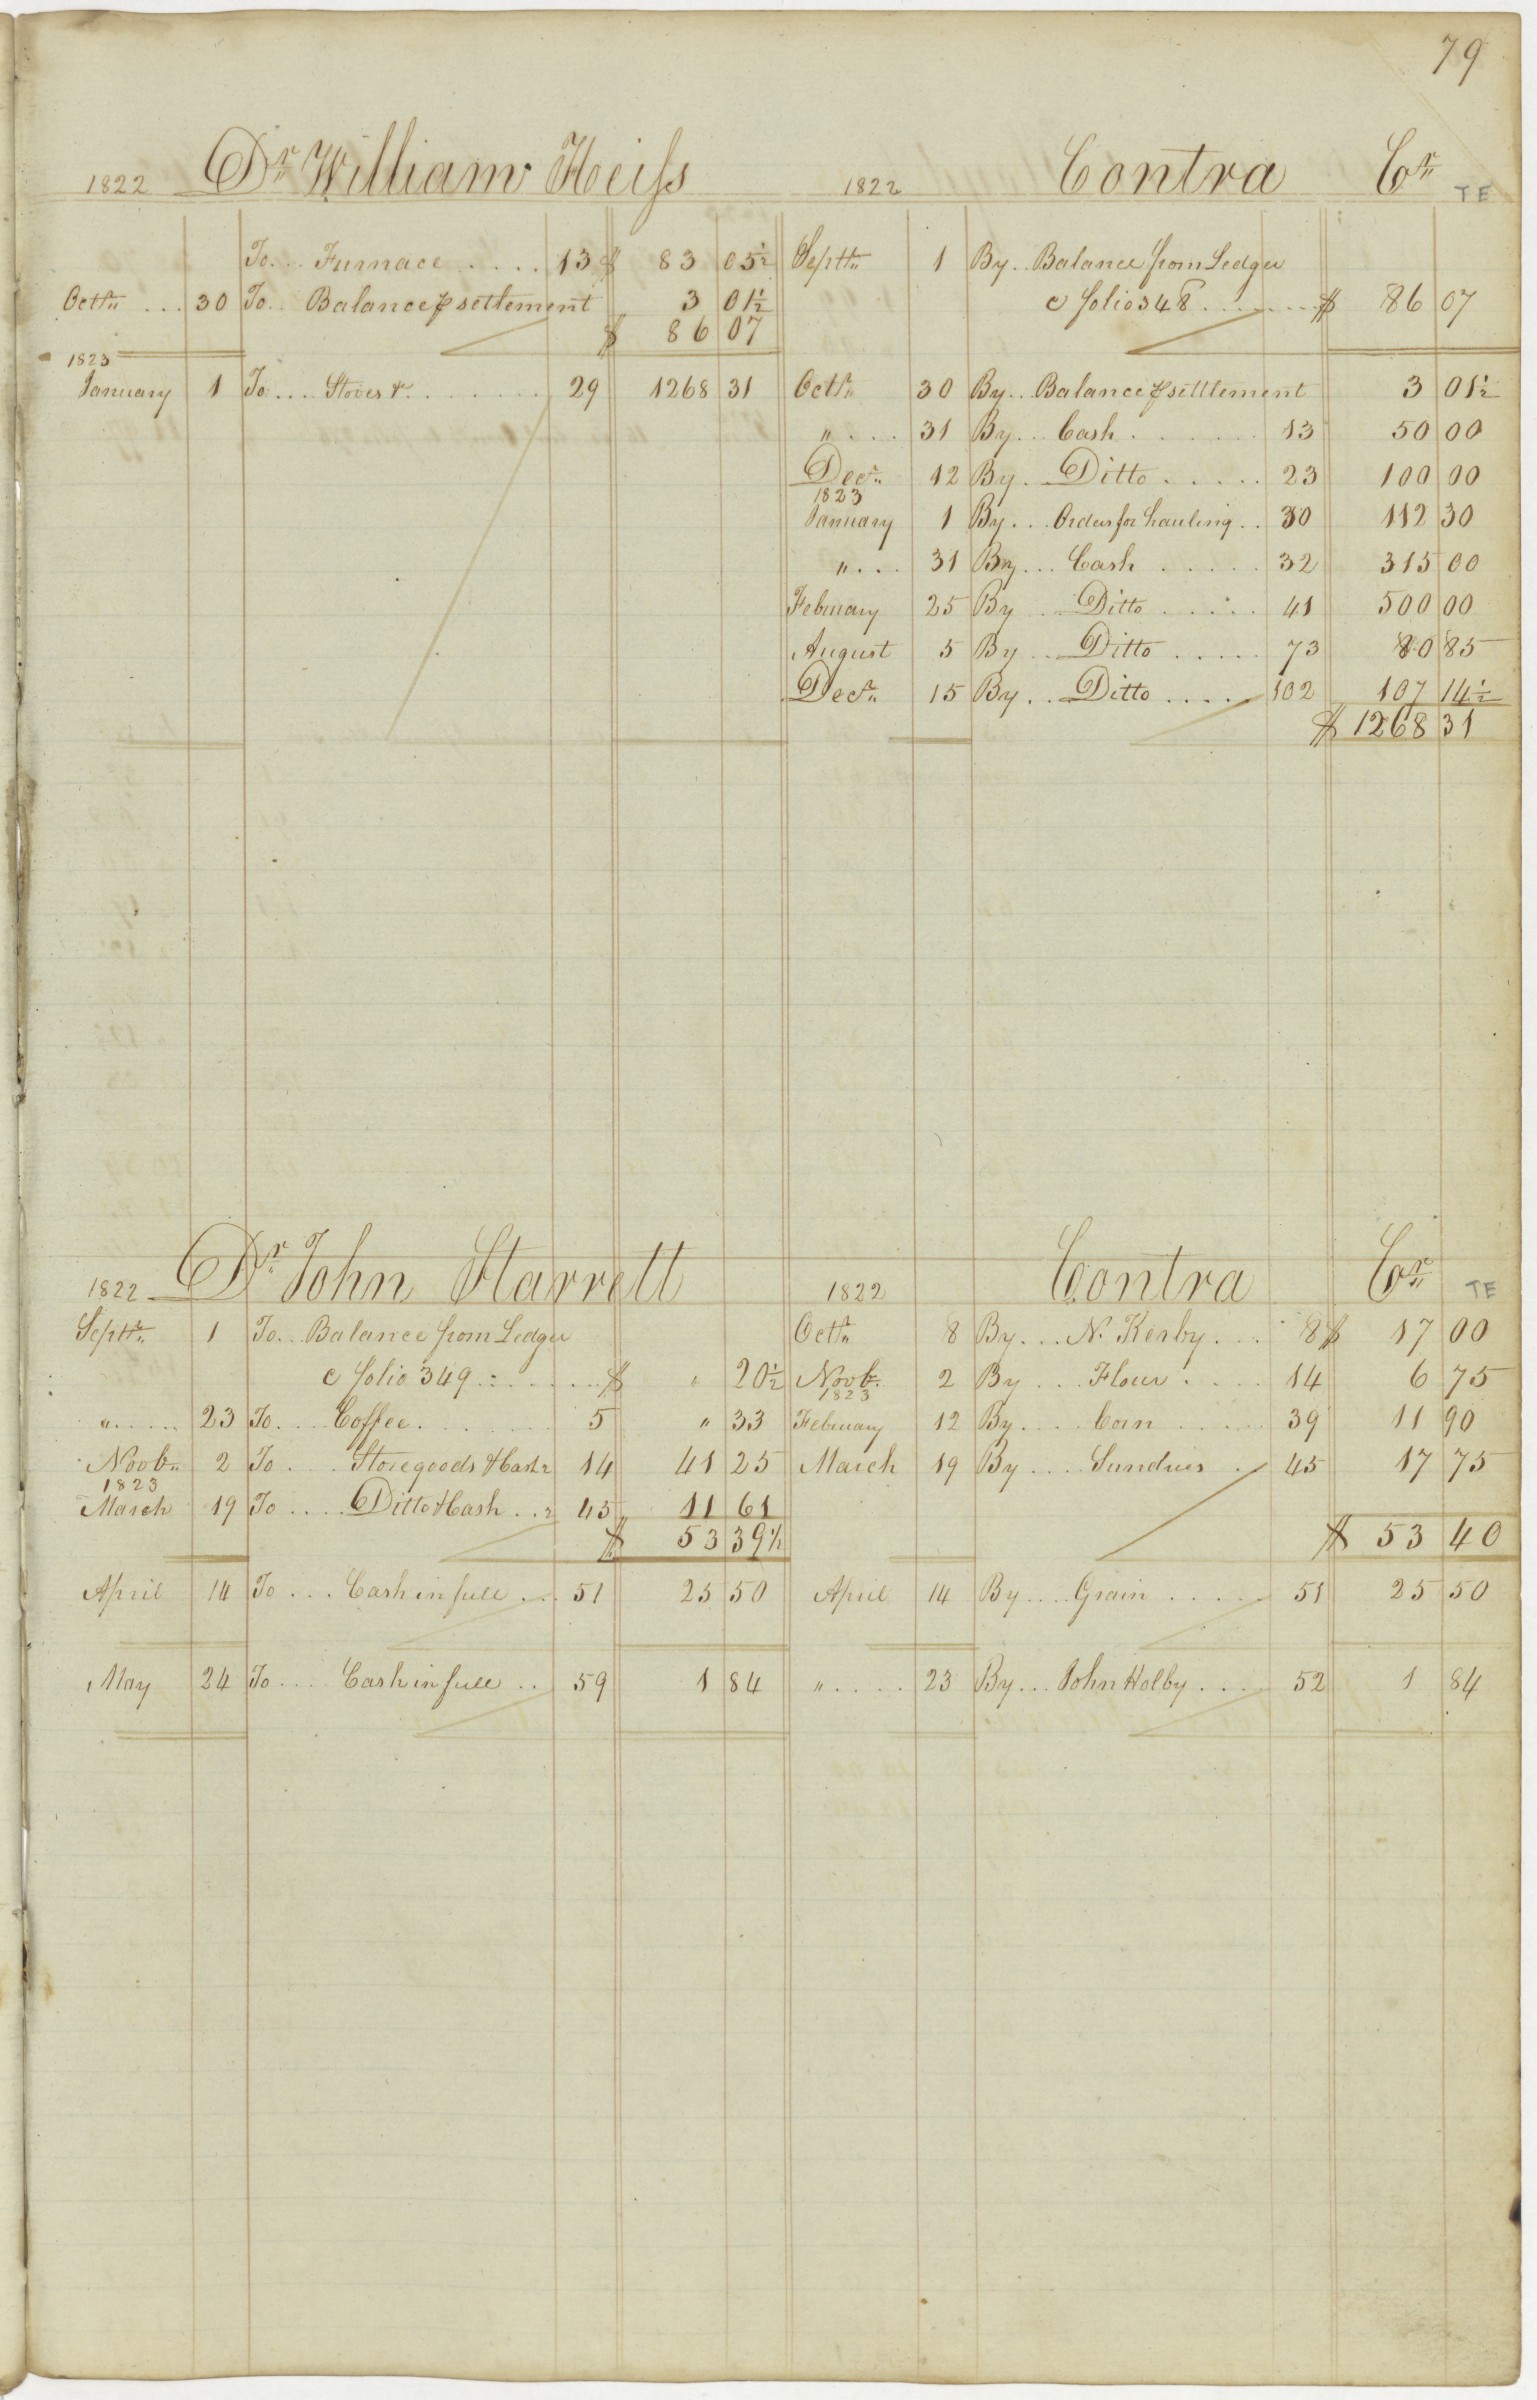 79
1822 Dr William Heiſs 1822 Contra Cr TE
To... Furnace .... 13 $ 83 05½ Septr 1 By.. Balance from Ledger
Octr ... 30 To.. Balance ⅌ settlement 3 01½ C folio 348 ....... $ 86 07
$ 86 07
1823
January 1 To.... Stoves &c ........ 29 1268 31 Octr 30 By.. Balance ⅌ settlement 3 01½
" .... 31 By... Cash ....... 13 50 00
Decr 12 By. Ditto ..... 23 100 00
1823
January 1 By... Orders for hauling .. 30 112 30
" ... 31 By... Cash ..... 32 315 00
February 25 By .. Ditto ..... 41 500 00
August 5 By .. Ditto ..... 73 80 85
Decr 15 By.. Ditto .... 102 107 14½
$ 1268 31
1822 Dr John Starrett 1822 Contra Cr TE
Septr 1 To.. Balance from Ledger Octr 8 By... N. Kerby ... 8 $ 17 00
C folio 349 ....... $ " 20½ Novb. 2 By ... Flour .... 14 6 75
1823
" ..... 23 To... Coffee ....... 5 " 33 February 12 By.... Corn ..... 39 11 90
Novb. 2 To ... Storegoods & Cash 14 41 25 March 19 By.... Sundries . 45 17 75
1823
March 19 To .... Ditto & Cash .. 45 11 61
$ 53 39½ $ 53 40
April 14 To ... Cash in full ... 51 25 50 April 14 By.... Grain ..... 51 25 50
May 24 To.... Cash in full .. 59 1 84 " .... 23 By... John Holby .... 52 1 84